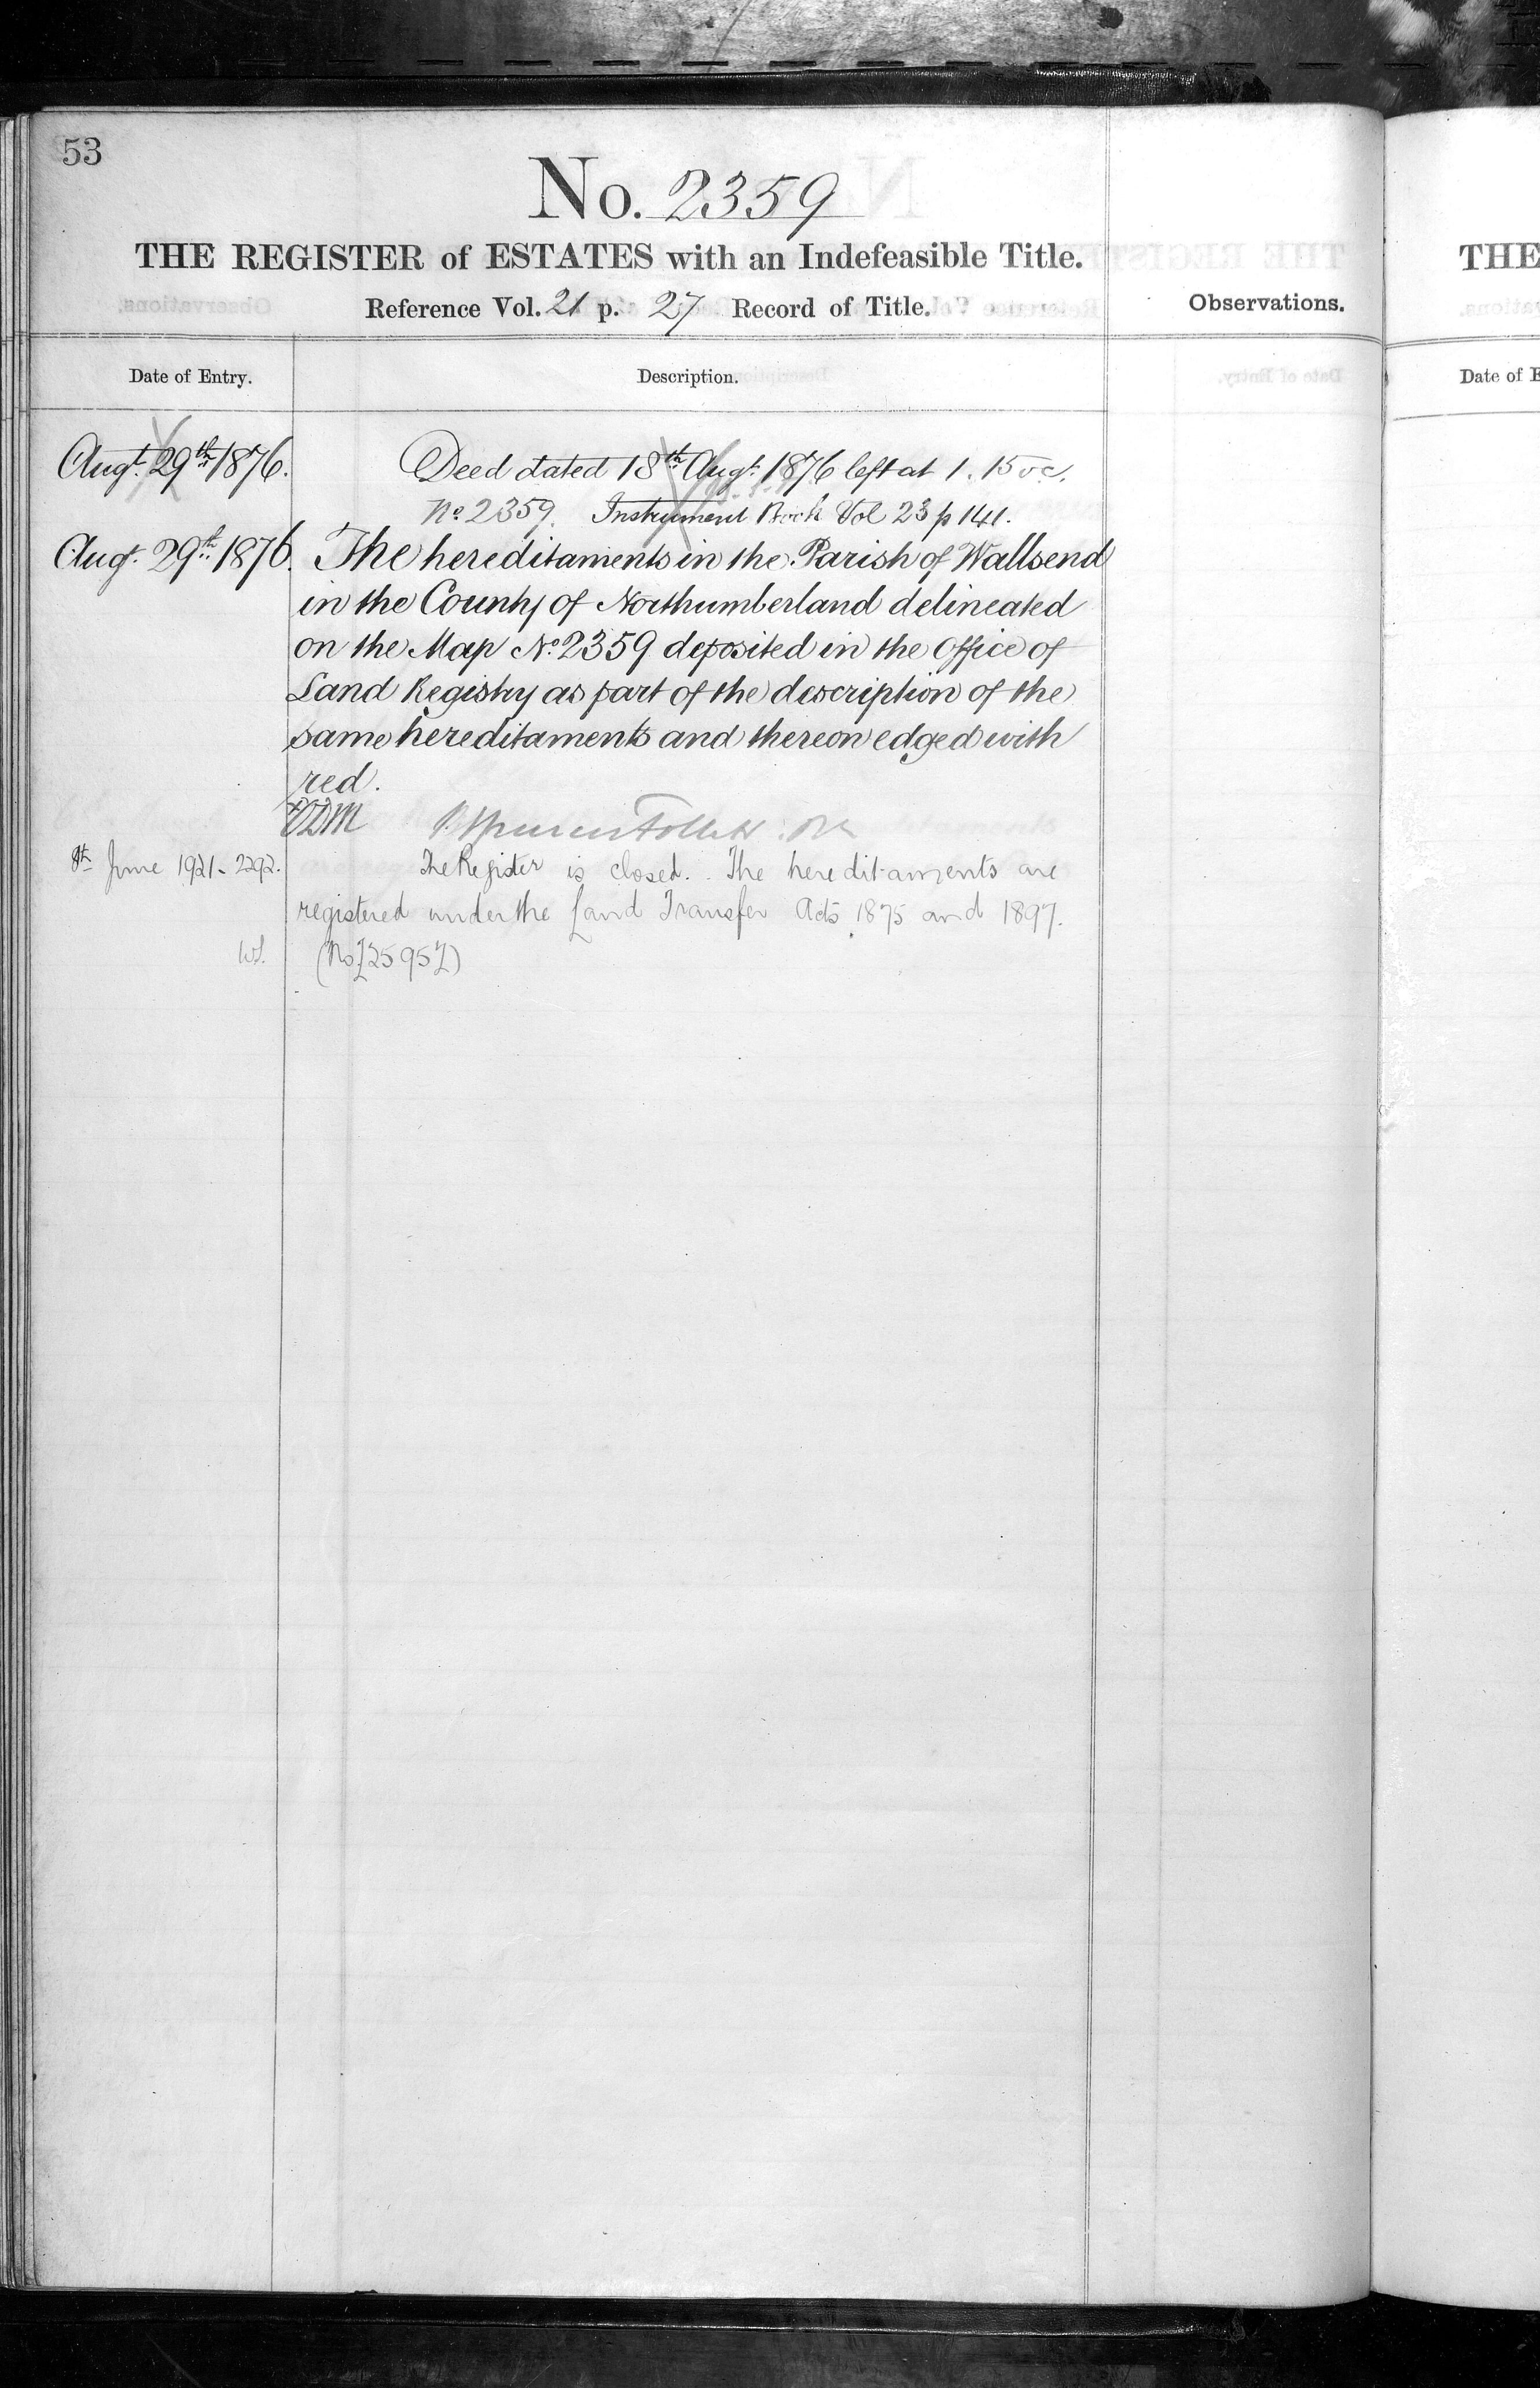 53
No. 2359
THE REGISTER of ESTATES with an Indefeasible Title.
Reference Vol. 21 p. 27 Record of Title.
Observations.
Date of Entry.
Description.
Augt. 29th 1876.
Deed dated 18th Augt. 1876 left at 1.15 oc.
No. 2359. Instrument Book Vol 23 p 141.
Augt. 29th 1876.
The hereditaments in the Parish of Wallsend
in the County of Northumberland delineated
on the Map No. 2359 deposited in the Office of
Land Registry as part of the description of the
same hereditaments and thereon edged with
red.
8th June 1921 - 2292.
The Register is closed. The hereditaments are
registered under the Land Transfer Acts 1875 and 1897.
THE
Date of E